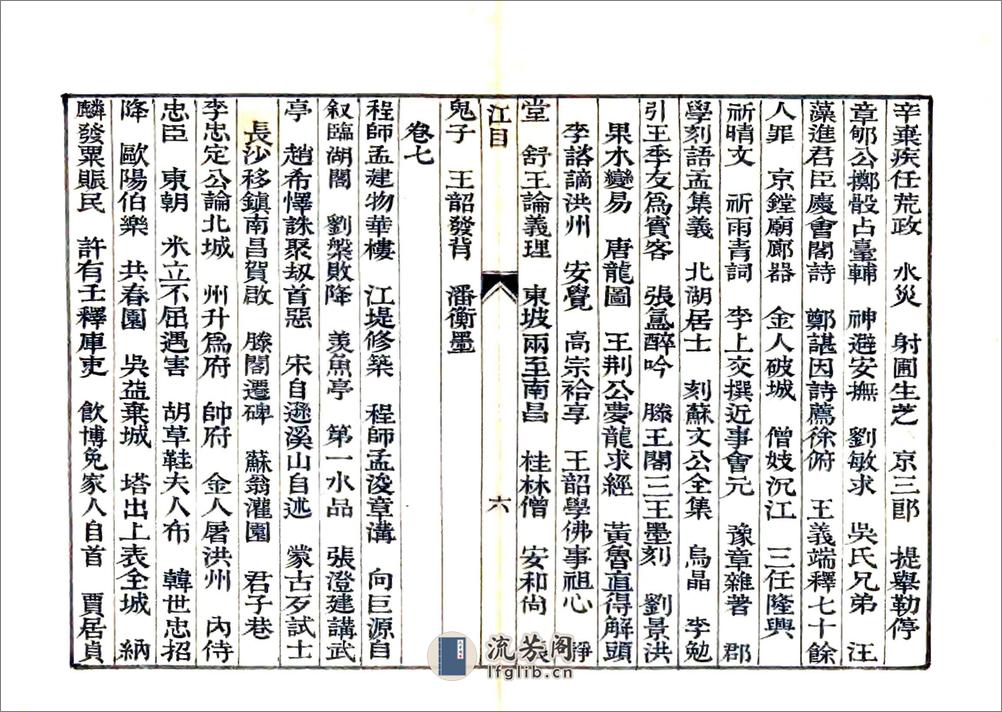 辛棄疾任荒政　水災　射圃生芝　京三郎　提舉勒停
章郇公擲骰占臺輔　神避安撫　劉敏求　吳氏兄弟　汪
藻進君臣慶會閣詩　鄭諶因詩薦徐俯　王義端釋七十餘
人罪　京鏜廟廊器　金人破城　僧妓沉江　三任隆興
祈晴文　祈雨青詞　李上交撰近事會元　豫章雜著　郡
學刻語孟集義　北湖居士　刻蘇文公全集　烏晶　李勉
引王季友爲賓客　張氳醉吟　滕王閣三王墨刻　劉景洪
果木變易　唐龍圖　王荆公婆龍求經　黃魯直得解頭
李諮謫洪州　安覺　高宗祫享　王韶學佛事祖心　靜
堂　舒王論義理　東坡兩至南昌　桂林僧　安和尚
江目
六
鬼子　王韶發背　潘衡墨
卷七
程師孟建物華樓　江堤修築　程師孟浚章溝　向巨源自
叙臨湖閣　劉槃敗降　羨魚亭　第一水品　張澄建講武
亭　趙希懌誅聚刼首惡　宋自遜溪山自述　蒙古歹試士
長沙移鎮南昌賀啟　滕閣遷碑　蘇翁灌園　君子巷
李忠定公論北城　州升爲府　帥府　金人屠洪州　內侍
忠臣　東朝　米立不屈遇害　胡草鞋夫人布　韓世忠招
降　歐陽伯樂　共春園　吳益棄城　塔出上表全城　納
麟發粟賑民　許有壬釋庫吏　飲博免家人自首　賈居貞
流芳阁
lfglib.cn